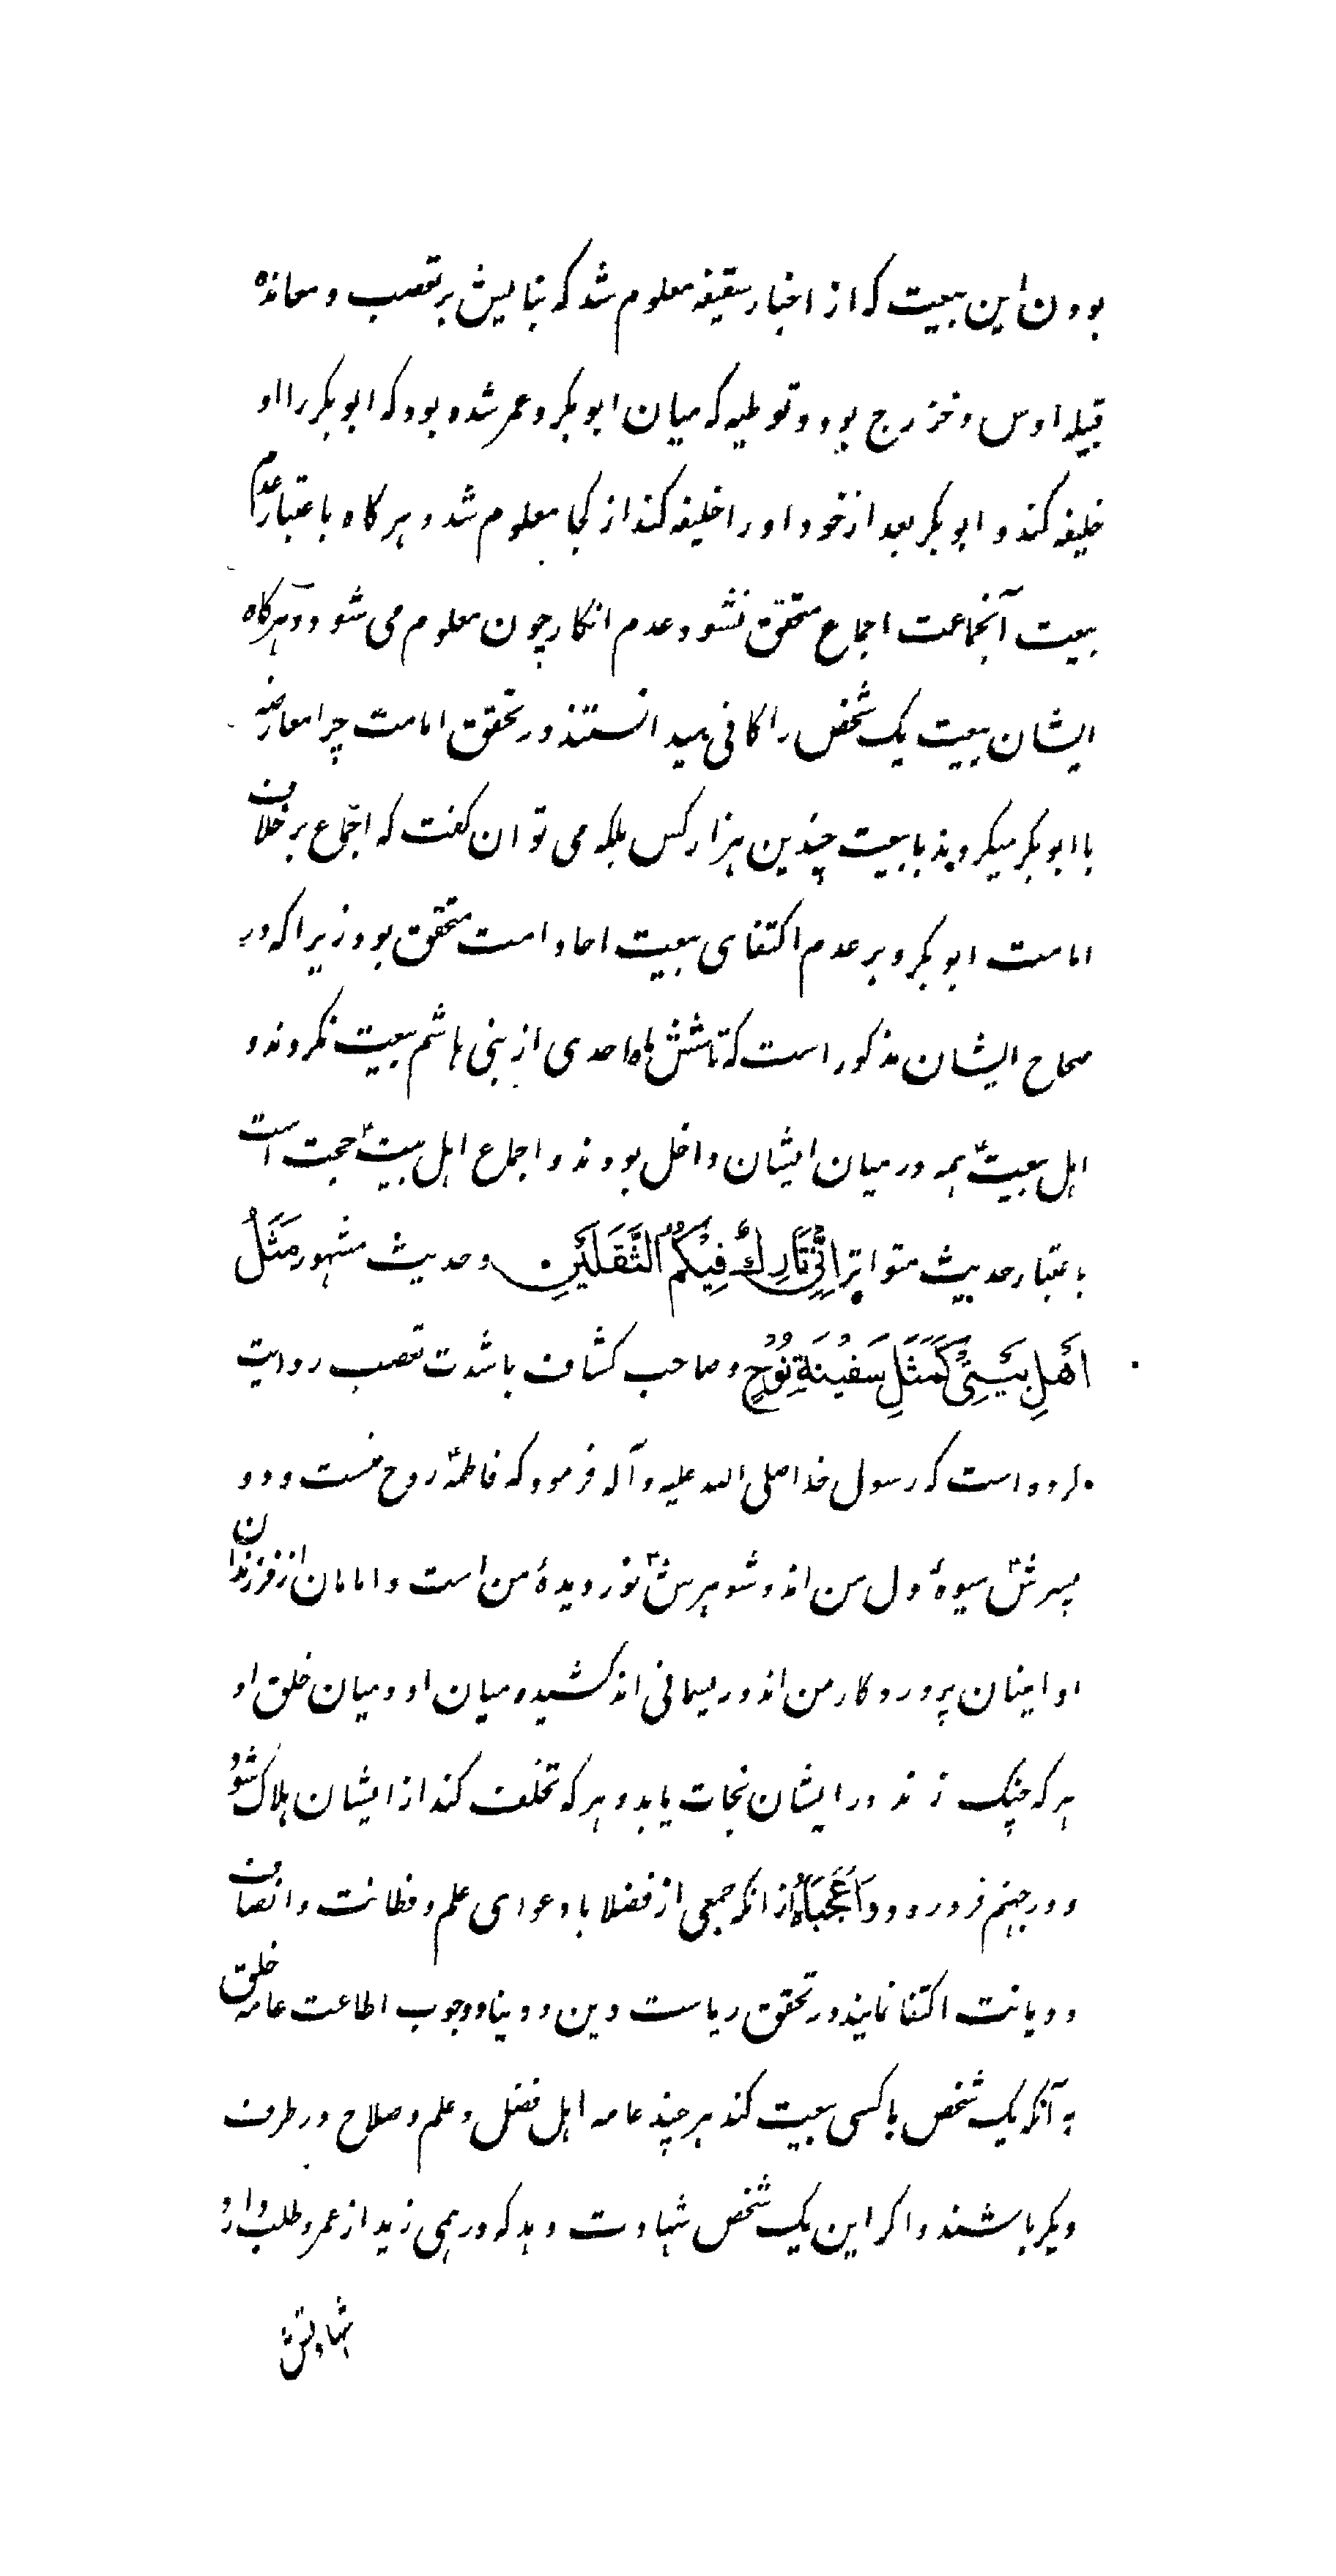 بودن این بیعت که از اخبار سقیفه معلوم شد که بنایش بر تعصب و معانده
قبیله اوس و خزرج بود و توطیه که میان ابوبکر و عمر شده بود که ابوبکر را او
خلیفه کند و ابوبکر بعد از خود او را خلیفه کند از کجا معلوم شد و هر کاه باعتبار عدم
بیعت آنجماعت اجماع متحقق نشود عدم انکار چون معلوم می شود و هرکاه
ایشان بیعت یک شخص را کافی میدانستند در تحقق امامت چرا معارضه
با ابوبکر میکردند با بیعت چندین هزار کس بلکه می توان کفت که اجماع بر خلاف
امامت ابوبکر و بر عدم اکتفای بیعت احاد امت متحقق بود زیرا که در
صحاح ایشان مذکور است که تا شش ماه احدی از بنی هاشم بیعت نکردند و
اهل بیعت همه در میان ایشان داخل بودند و اجماع اهل بیت حجت است
باعتبار حدیث متواتر اِنّی تَارِكٌ فِیکُمُ الثَّقَلَیْنِ و حدیث مشهور مَثَلُ
اَهْلِ بَیْتِی کَمَثَلِ سَفِینَةِ نُوْحٍ و صاحب کشاف با شدت تعصب روایت
کرده است که رسول خدا صلی الله علیه و آله فرمود که فاطمهؑ روح منست و دو
پسرشؑ میوهٔ دل من اند و شوهرشؑ نور دیدهٔ من است و امامان از فرزندان
او امینان پروردکار من اند و ریسمانی اند کشیده میان او و میان خلق او
هر که چنک زند در ایشان نجات یابد و هر که تخلف کند از ایشان هلاک شود
و در جهنم فرو رود و وَاعَجَبَاهُ از انکه جمعی از فضلا با دعوای علم و فطانت و انصاف
و دیانت اکتفا نمایند در تحقق ریاست دین و دنیا و وجوب اطاعت عامه خلق
به آنکه یک شخص با کسی بیعت کند هر چند عامه اهل فضل و علم و صلاح در طرف
دیکر باشند و اکر این یک شخص شهادت دهد که درهمی زید از عمرو طلب دارد
شهادتش